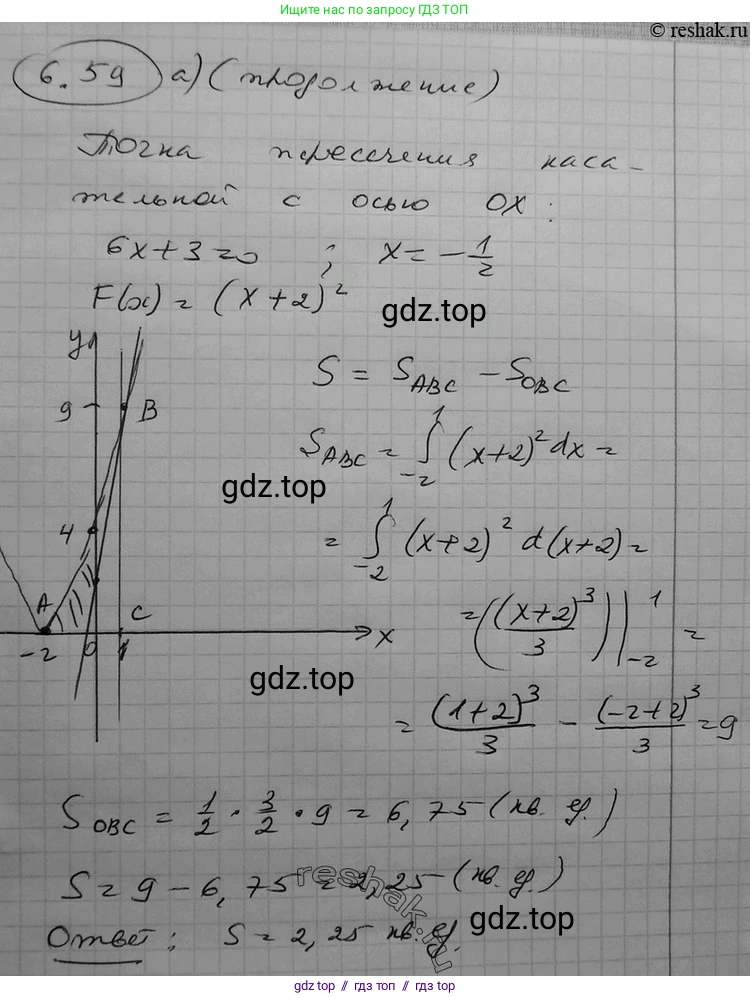 Пишите нам по запросу ГДЗ ТОП
© reshak.ru
6.59 а) (продолжение)
Точка пересечения каса-
тельной с осью OX:
6x+3=0 ; x=-1/2
F(x) = (x+2)²
gdz.top
y
S = S_ABC - S_OBC
9
B
S_ABC = ∫_{-2}^{1} (x+2)² dx =
gdz.top
4
= ∫_{-2}^{1} (x+2)² d(x+2) =
A
C
x
= ((x+2)³/3) |_{-2}^{1} =
-2 0 1
gdz.top
= (1+2)³/3 - (-2+2)³/3 = 9
S_OBC = 1/2 · 3/2 · 9 = 6,75 (кв. ед.)
S = 9 - 6,75 = 2,25 (кв. ед.)
reshak.ru
Ответ: S = 2,25 кв. ед.
gdz.top
gdz.top // гдз топ // gdz top